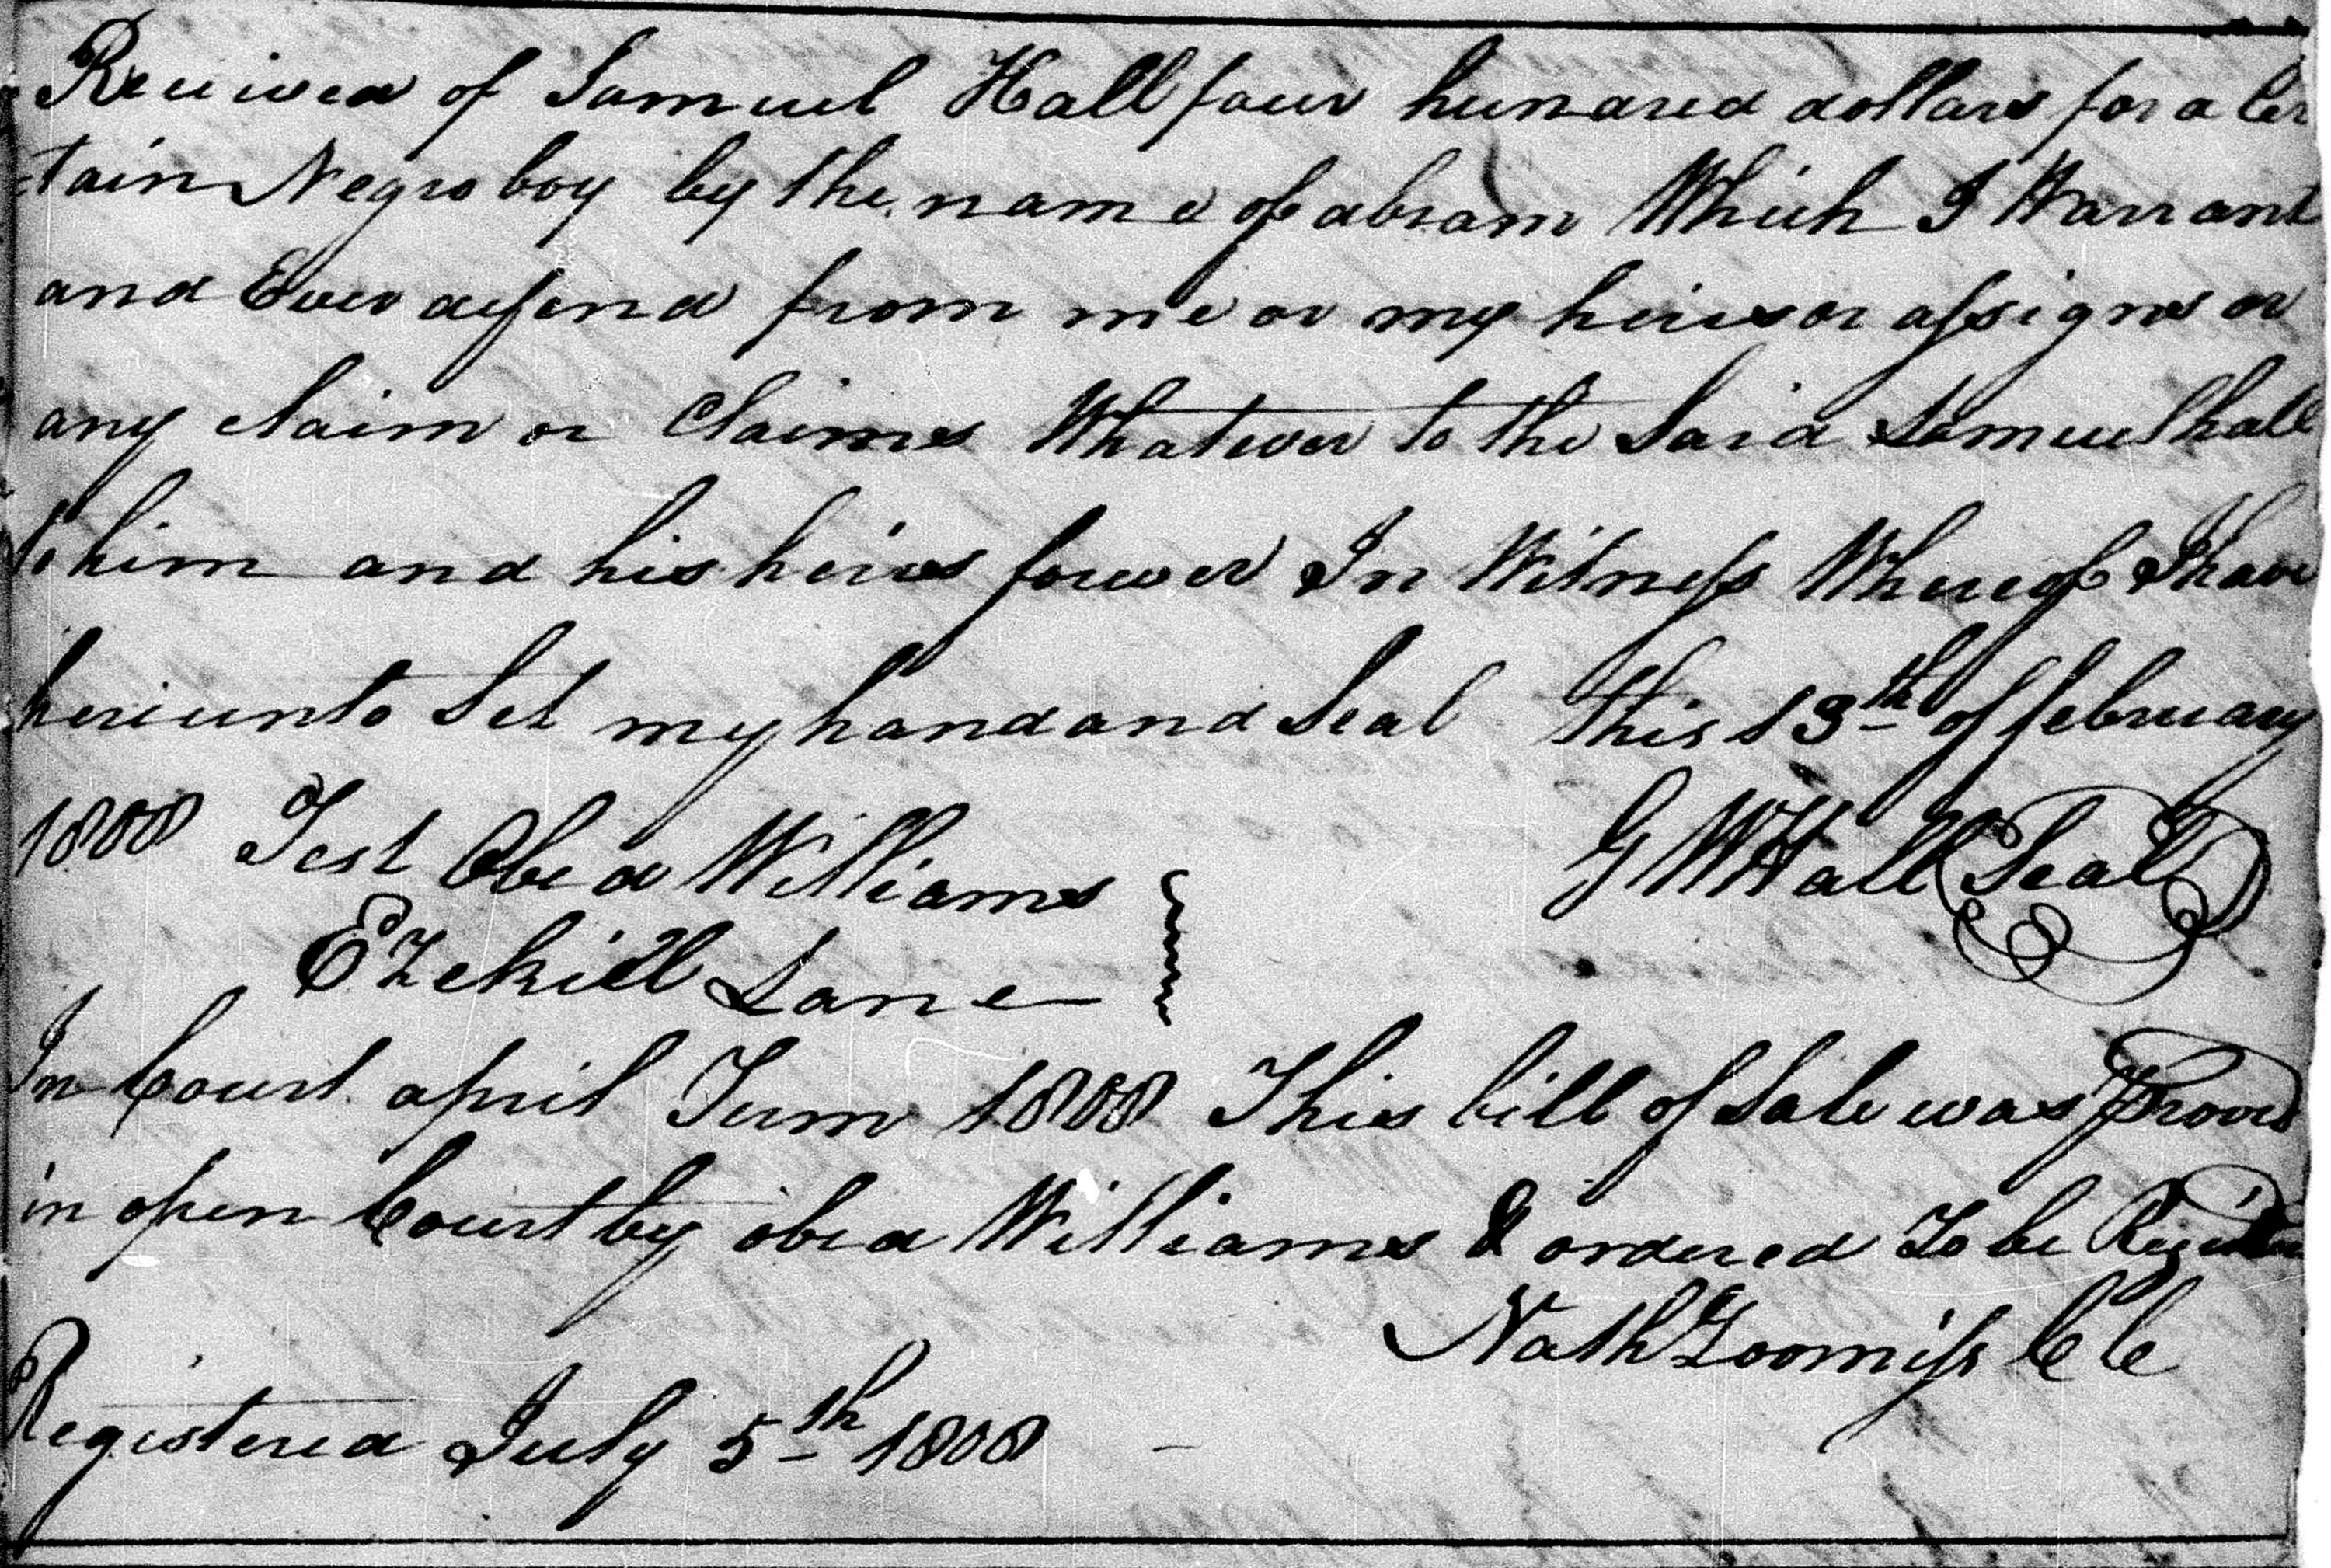 Received of Samuel Hall four hundred dollars for a Cer
tain Negro boy by the name of abram Which I Warrant
and Ever defend from me or my heires or assigns or
any claim or Claims Whatever to the Said Samuel hall
to him and his heirs forever In Witness Whereof I have
hereunto Set my hand and Seal this 13th of february
1808 Test Obed Williams G W Hall Seal
Ezekiell Lane
In Court april Term 1808 This bill of Sale was Proved
in open Court by obed Williams & ordered To be
Nath Loomiss CC
Registered July 5th 1808